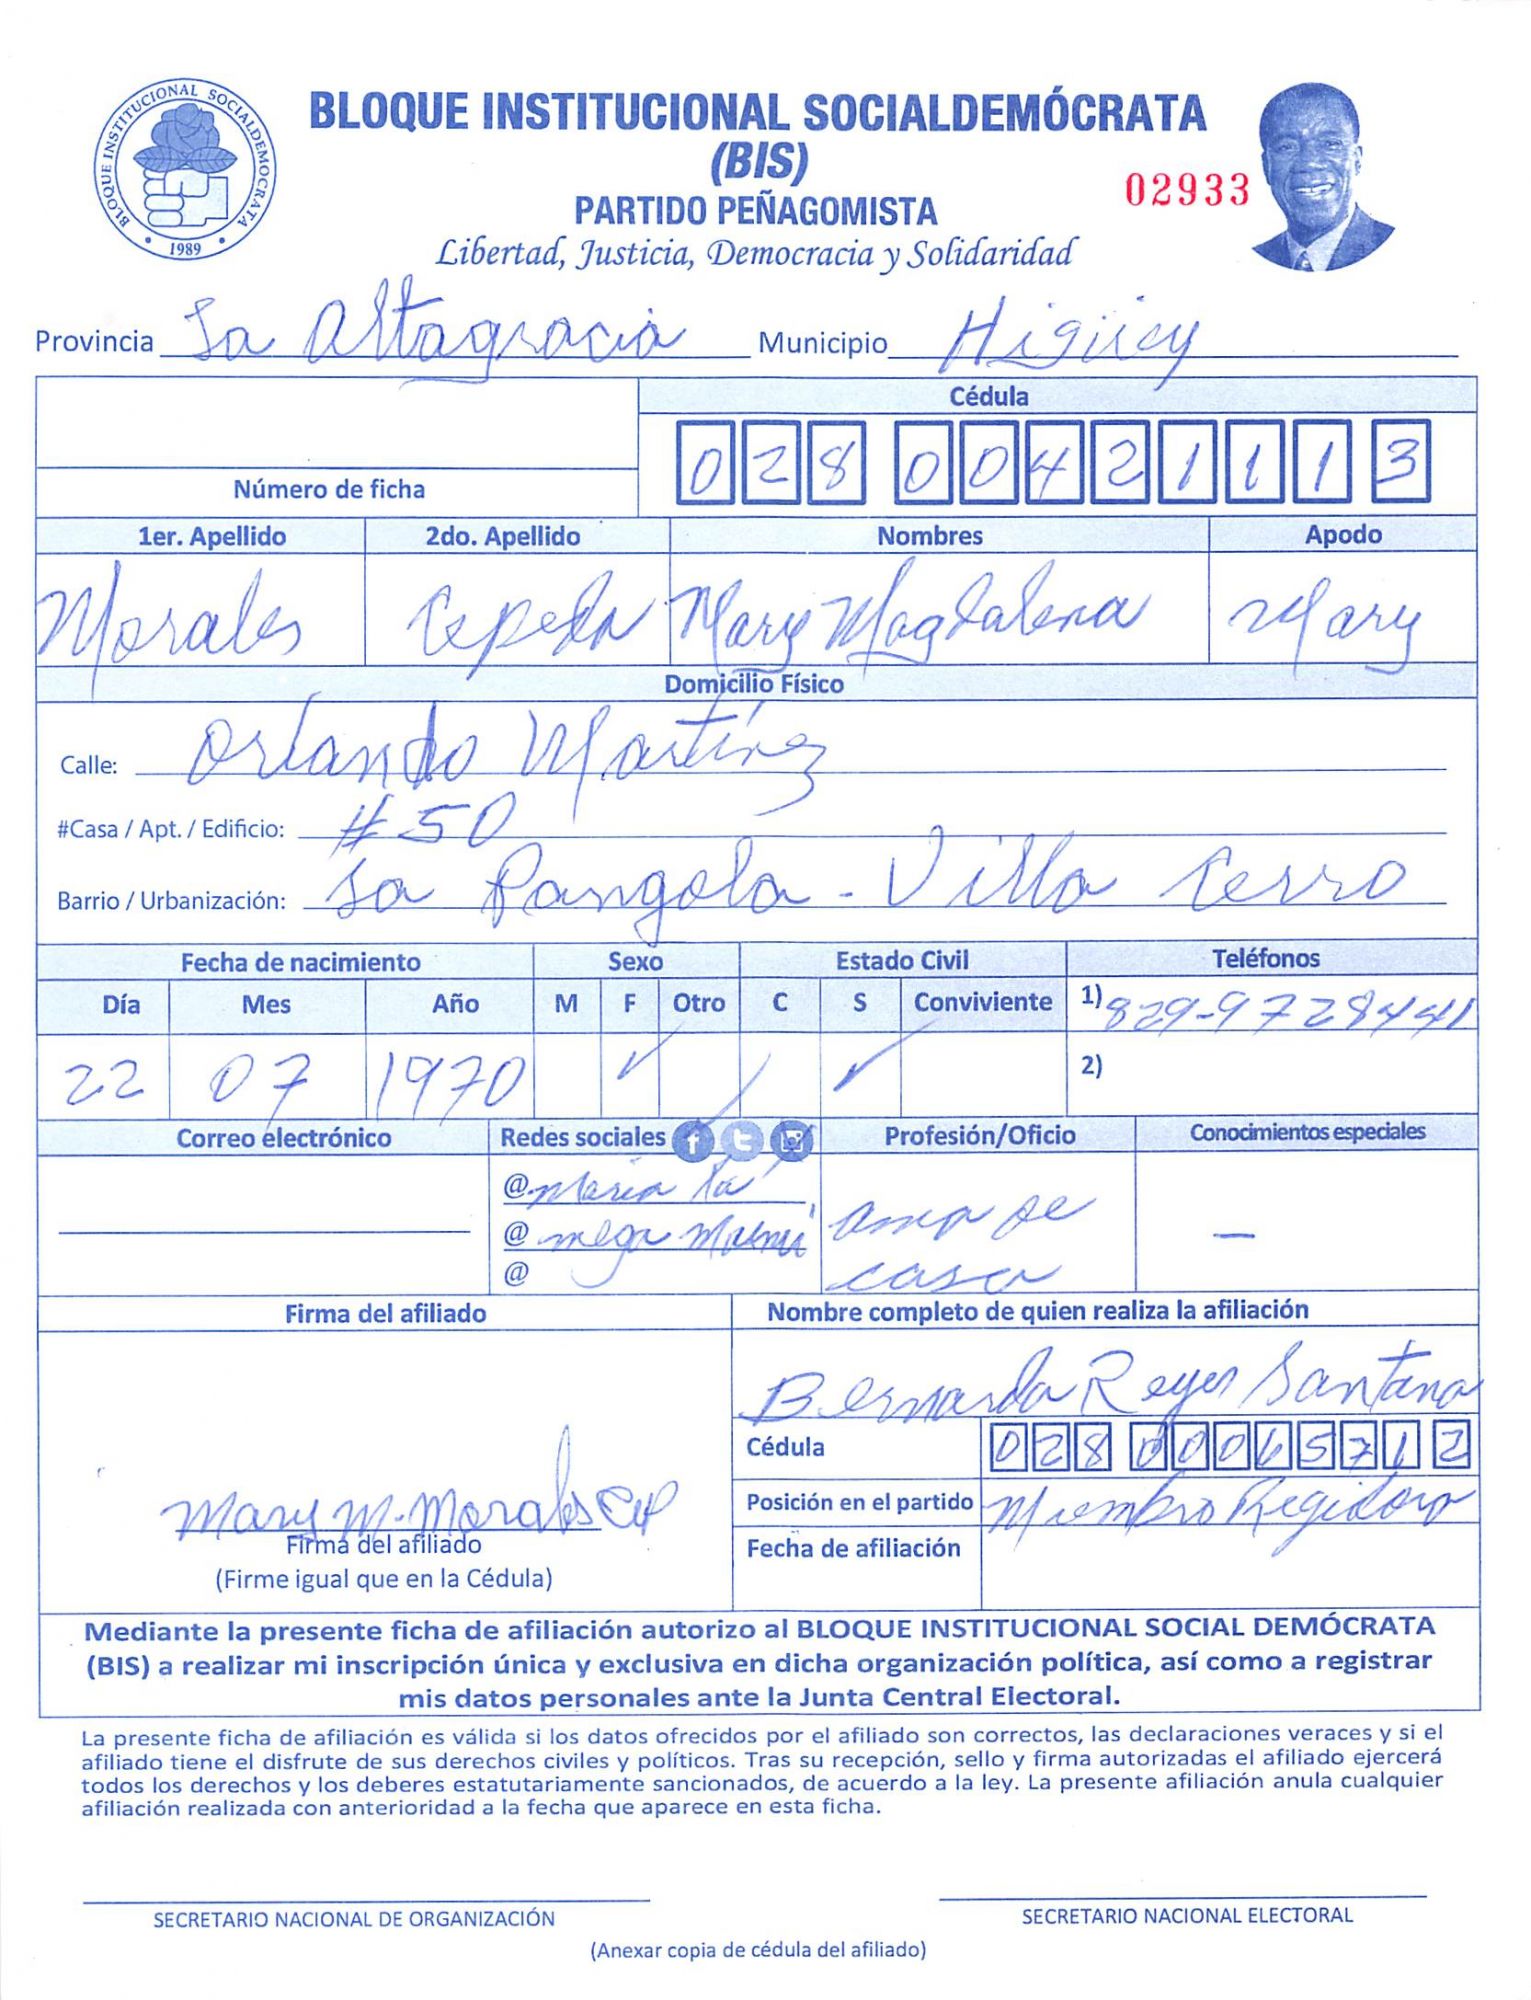 BLOQUE INSTITUCIONAL SOCIALDEMOCRATA
1989
BLOQUE INSTITUCIONAL SOCIALDEMÓCRATA
(BIS)
02933
PARTIDO PEÑAGOMISTA
Libertad, Justicia, Democracia y Solidaridad
Provincia La Altagracia Municipio Higüey
Cédula
028 0042111 3
Número de ficha
1er. Apellido 2do. Apellido Nombres Apodo
Morales Cepeda Mary Magdalena Mary
Domicilio Físico
Calle: Orlando Martínez
#Casa / Apt. / Edificio: #50
Barrio / Urbanización: La Pangola - Villa Cerro
Fecha de nacimiento Sexo Estado Civil Teléfonos
Día Mes Año M F Otro C S Conviviente 1) 829-9728441
22 07 1970 ✓ ✓ 2)
Correo electrónico Redes sociales Profesión/Oficio Conocimientos especiales
@ Maria
@ mega
@
ama de
casa
—
Firma del afiliado Nombre completo de quien realiza la afiliación
Bernarda Reyes Santana
Cédula 028 0006571 2
Mary M. Morales
Posición en el partido Miembro Regidora
Firma del afiliado
Fecha de afiliación
(Firme igual que en la Cédula)
Mediante la presente ficha de afiliación autorizo al BLOQUE INSTITUCIONAL SOCIAL DEMÓCRATA
(BIS) a realizar mi inscripción única y exclusiva en dicha organización política, así como a registrar
mis datos personales ante la Junta Central Electoral.
La presente ficha de afiliación es válida si los datos ofrecidos por el afiliado son correctos, las declaraciones veraces y si el
afiliado tiene el disfrute de sus derechos civiles y políticos. Tras su recepción, sello y firma autorizadas el afiliado ejercerá
todos los derechos y los deberes estatutariamente sancionados, de acuerdo a la ley. La presente afiliación anula cualquier
afiliación realizada con anterioridad a la fecha que aparece en esta ficha.
SECRETARIO NACIONAL DE ORGANIZACIÓN SECRETARIO NACIONAL ELECTORAL
(Anexar copia de cédula del afiliado)